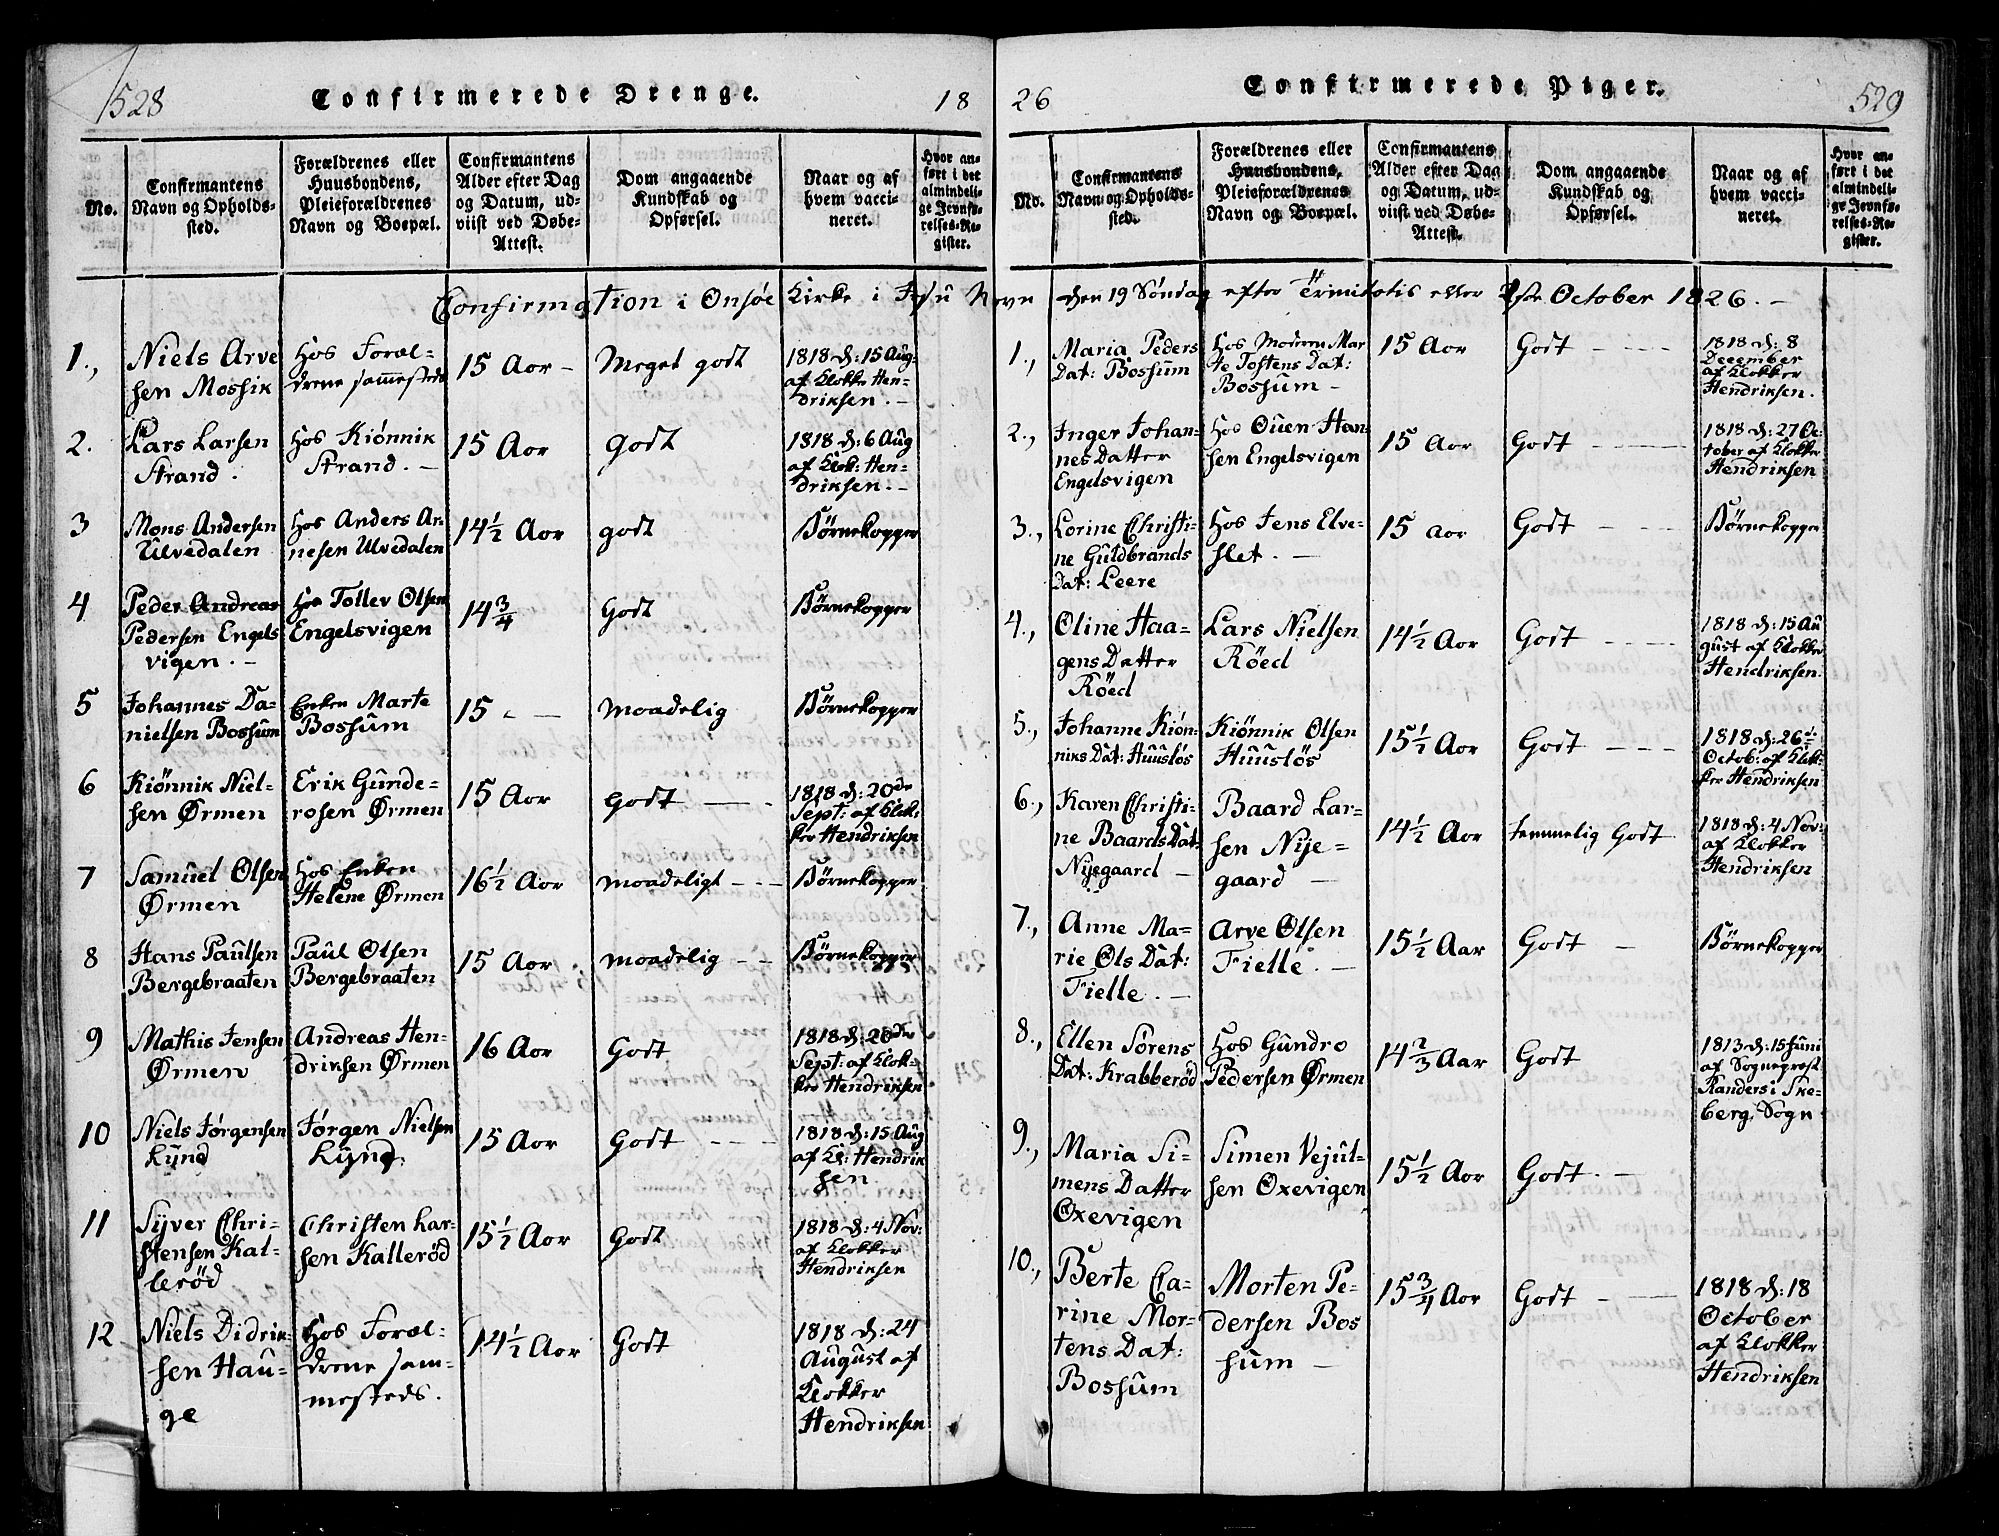 528
Confirmerede Drenge.
18
No.
Confirmantens
Navn og Opholds-
sted.
Forældrenes eller
Huusbondens,
Pleieforældrenes
Navn og Boepæl.
Confirmantens
Alder efter Dag
og Datum, ud-
viist ved Døbe-
Attest.
Dom angaaende
Kundskab og
Opførsel.
Naar og af
hvem vacci-
neret.
Hvor an-
ført i det
almindeli-
ge Jevnfø-
relses-Re-
gister.
Confirmation i Onsøe Kirke i Jesu Navn den 19 Söndag efter Trinitatis eller October 1826. -
1.,
Niels Arve
sen Mossik
Hos Foræl-
drene sammesteds
15 Aor -
Meget godt
1818 d: 15 Aug-
af Klokker Hen-
driksen. -
2.
Lars Larsen
Strand.
Hos Kiönnik
Strand. -
15 Aor
godt
1818 d: 6 Aug
af Klok: Hen-
driksen. -
3
Mons Andersen
Ulvedalen
Hos Anders Ar-
nesen Ulvedalen
14½ Aor
godt
Börnekopper
4
Peder Andreas
Pedersen Engels
vigen. -
Hos Tollev Olsen
Engelsvigen
14¾
Godt
Börnekopper
5
Johannes Da-
nielsen Bossum
Enken Marte
Bossum
15 - -
moadelig
Börnekopper
6
Kiönnik Niel-
sen Ørmen
Erik Gunde-
rosen Ørmen
15 Aor
Godt - -
1818 d: 20de
Sept: af Klok-
ker Hendriksen
7
Samuel Olsen
Ørmen
Hos Enken
Helene Ørmen
16½ Aor
moadeligt - - -
Börnekopper
8
Hans Paulsen
Bergebraaten
Paul Olsen
Bergebraaten
15 Aor
moadelig - -
Börnekopper
9
Mathis Jensen
Ørmen
Andreas Hen-
driksen Ørmen
16 Aor
Godt
1818 d: 20de
Sept: af Klok-
ker Hendriksen
10
Niels Jörgensen
Lund
Jörgen Nielsen
Lund.
15 Aor
Godt - - -
1818 d: 15 Aug
af Kl: Hendrik
sen
11
Syver Chri-
stensen Kal-
leröd
Christen Lar-
sen Kalleröd
15½ Aor
Godt
1818 d: 4 Nov:
af Klokker
Hendriksen
12
Niels Didrik-
sen Hau-
ge
Hos Foræl-
drene sam-
mesteds.
14½ Aor
Godt
1818 d: 24
August af
Klokker
Hendriksen
26
Confirmerede Piger.
529
No.
Confirmantens
Navn og Opholds-
sted.
Forældrenes eller
Huusbondens,
Pleieforældrenes
Navn og Boepæl.
Confirmantens
Alder efter Dag
og Datum, ud-
viist ved Døbe-
Attest.
Dom angaaende
Kundskab og
Opførsel.
Naar og af
hvem vacci-
neret.
Hvor an-
ført i det
almindeli-
ge Jevnfø-
relses-Re-
gister.
1.,
Maria Peders
Dat: Bossum
Hos Moderen Mar
te Tostens Dat:
Bossum -
15 Aor
Godt - - -
1818 d: 8
December
af Klokker
Hendriksen.
2.,
Inger Johan-
nes Datter
Engelsvigen
Hos Ouen Han-
sen Engelsvigen
15 Aor
Godt - - -
1818 d: 27 Oc-
tober af Klokker
Hendriksen
3.,
Lorine Christi-
ne Guldbrands
Dat: Leere
Hos Jens Elve-
slet. -
15 Aor
Godt - - -
Börnekopper
4.,
Oline Haa-
gens Datter
Röed
Lars Nielsen
Röed
14½ Aor
Godt - - -
1818 d: 15 Au
gust af Klokker
Hendriksen.
5.,
Johanne Kiön-
niks Dat: Huuslös
Kiönnik Olsen
Huuslös
15½ Aor
Godt - - -
1818 d: 26de
Octob: af Klok-
ker Hendriksen
6.,
Karen Christi-
ne Baards Dat:
Nijegaard -
Baard Lar-
sen Nije-
gaard -
14½ Aor
temmelig Godt
1818 d: 4 Nov:
af Klokker
Hendriksen
7.,
Anne Ma-
rie Ols Dat:
Fielle. -
Arve Olsen
Fielle. -
15½ Aar
Godt -
Börnekopper
8.,
Ellen Sörens
Dat: Krabberöd
Hos Gundro
Pedersen Ørmen
14⅔ Aar
Godt
1813 d: 15 Juni
af Sogneprest
Randers i Ske-
berg Sogn
9.,
Maria Si-
mens Datter
Oxevigen
Simen Vejul-
sen Oxevigen
15½ Aor
Godt. -
10.,
Berte Ca-
rine Mor-
tens Dat:
Bossum
Morten Pe-
dersen Bos
sum -
15¾ Aor
Godt - -
1818 d: 18
October
af Klokker
Hendriksen